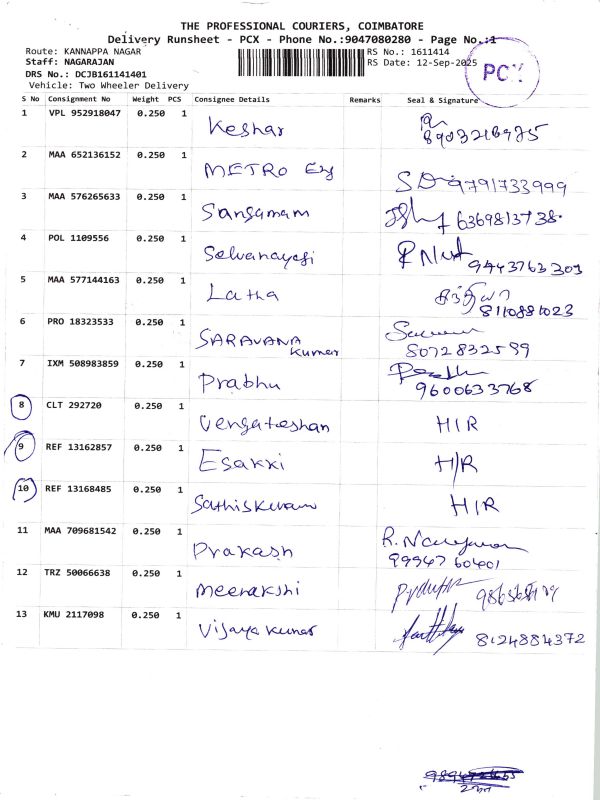 THE PROFESSIONAL COURIERS, COIMBATORE
Delivery Runsheet - PCX - Phone No.:9047080280 - Page No.:1
Route: KANNAPPA NAGAR RS No.: 1611414
Staff: NAGARAJAN RS Date: 12-Sep-2025
DRS No.: DCJB161141401
PCX
Vehicle: Two Wheeler Delivery
S No Consignment No Weight PCS Consignee Details Remarks Seal & Signature
1 VPL 952918047 0.250 1 Keshar
8903216975
2 MAA 652136152 0.250 1 METRO
SD 9791733999
3 MAA 576265633 0.250 1 Sangamam 6369813738
4 POL 1109556 0.250 1 Selvanayagi
9443763303
5 MAA 577144163 0.250 1 Latha
8110881023
6 PRO 18323533 0.250 1 SARAVANA
Kumar 8072832599
7 IXM 508983859 0.250 1 Prabhu
9600633768
8 CLT 292720 0.250 1 Vengateshan H/R
9 REF 13162857 0.250 1 Esakki H/R
10 REF 13168485 0.250 1 Sathiskumar H/R
11 MAA 709681542 0.250 1 Prakash R.Narayanan
9994760401
12 TRZ 50066638 0.250 1 meenakshi
13 KMU 2117098 0.250 1 Vijaya kumar 8124884372